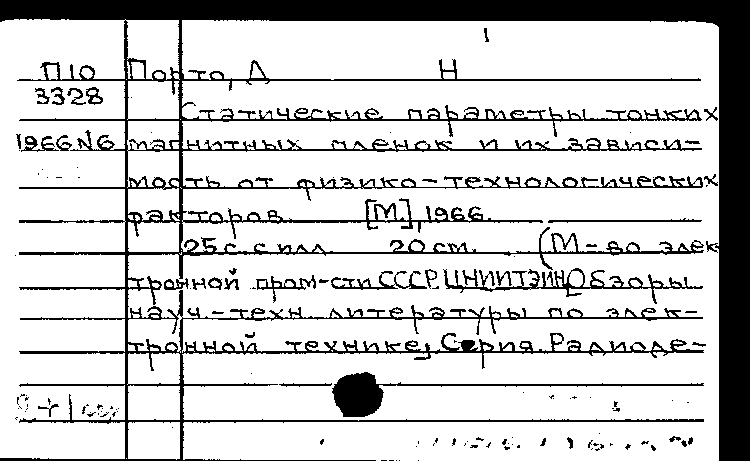 1
П10 Порто, Д Н
3328
Статические параметры тонких
1966 N6 магнитных пленок и их зависи-
мость от физико-технологических
факторов. [М.], 1966.
25 с. с илл. 20 см. (М-во элек
тронной пром-сти СССР. ЦНИИТЭИН. Обзоры
науч.-техн. литературы по элек-
тронной технике, Серия. Радиоде-